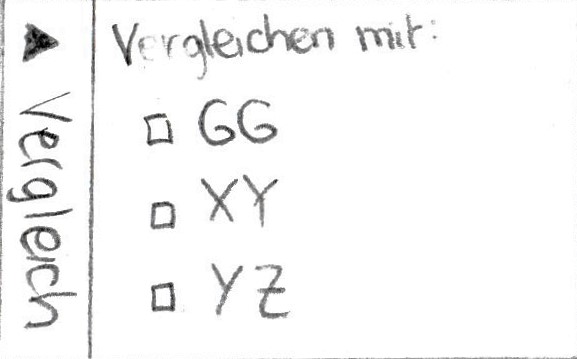 Vergleich
Vergleichen mit:
GG
XY
YZ